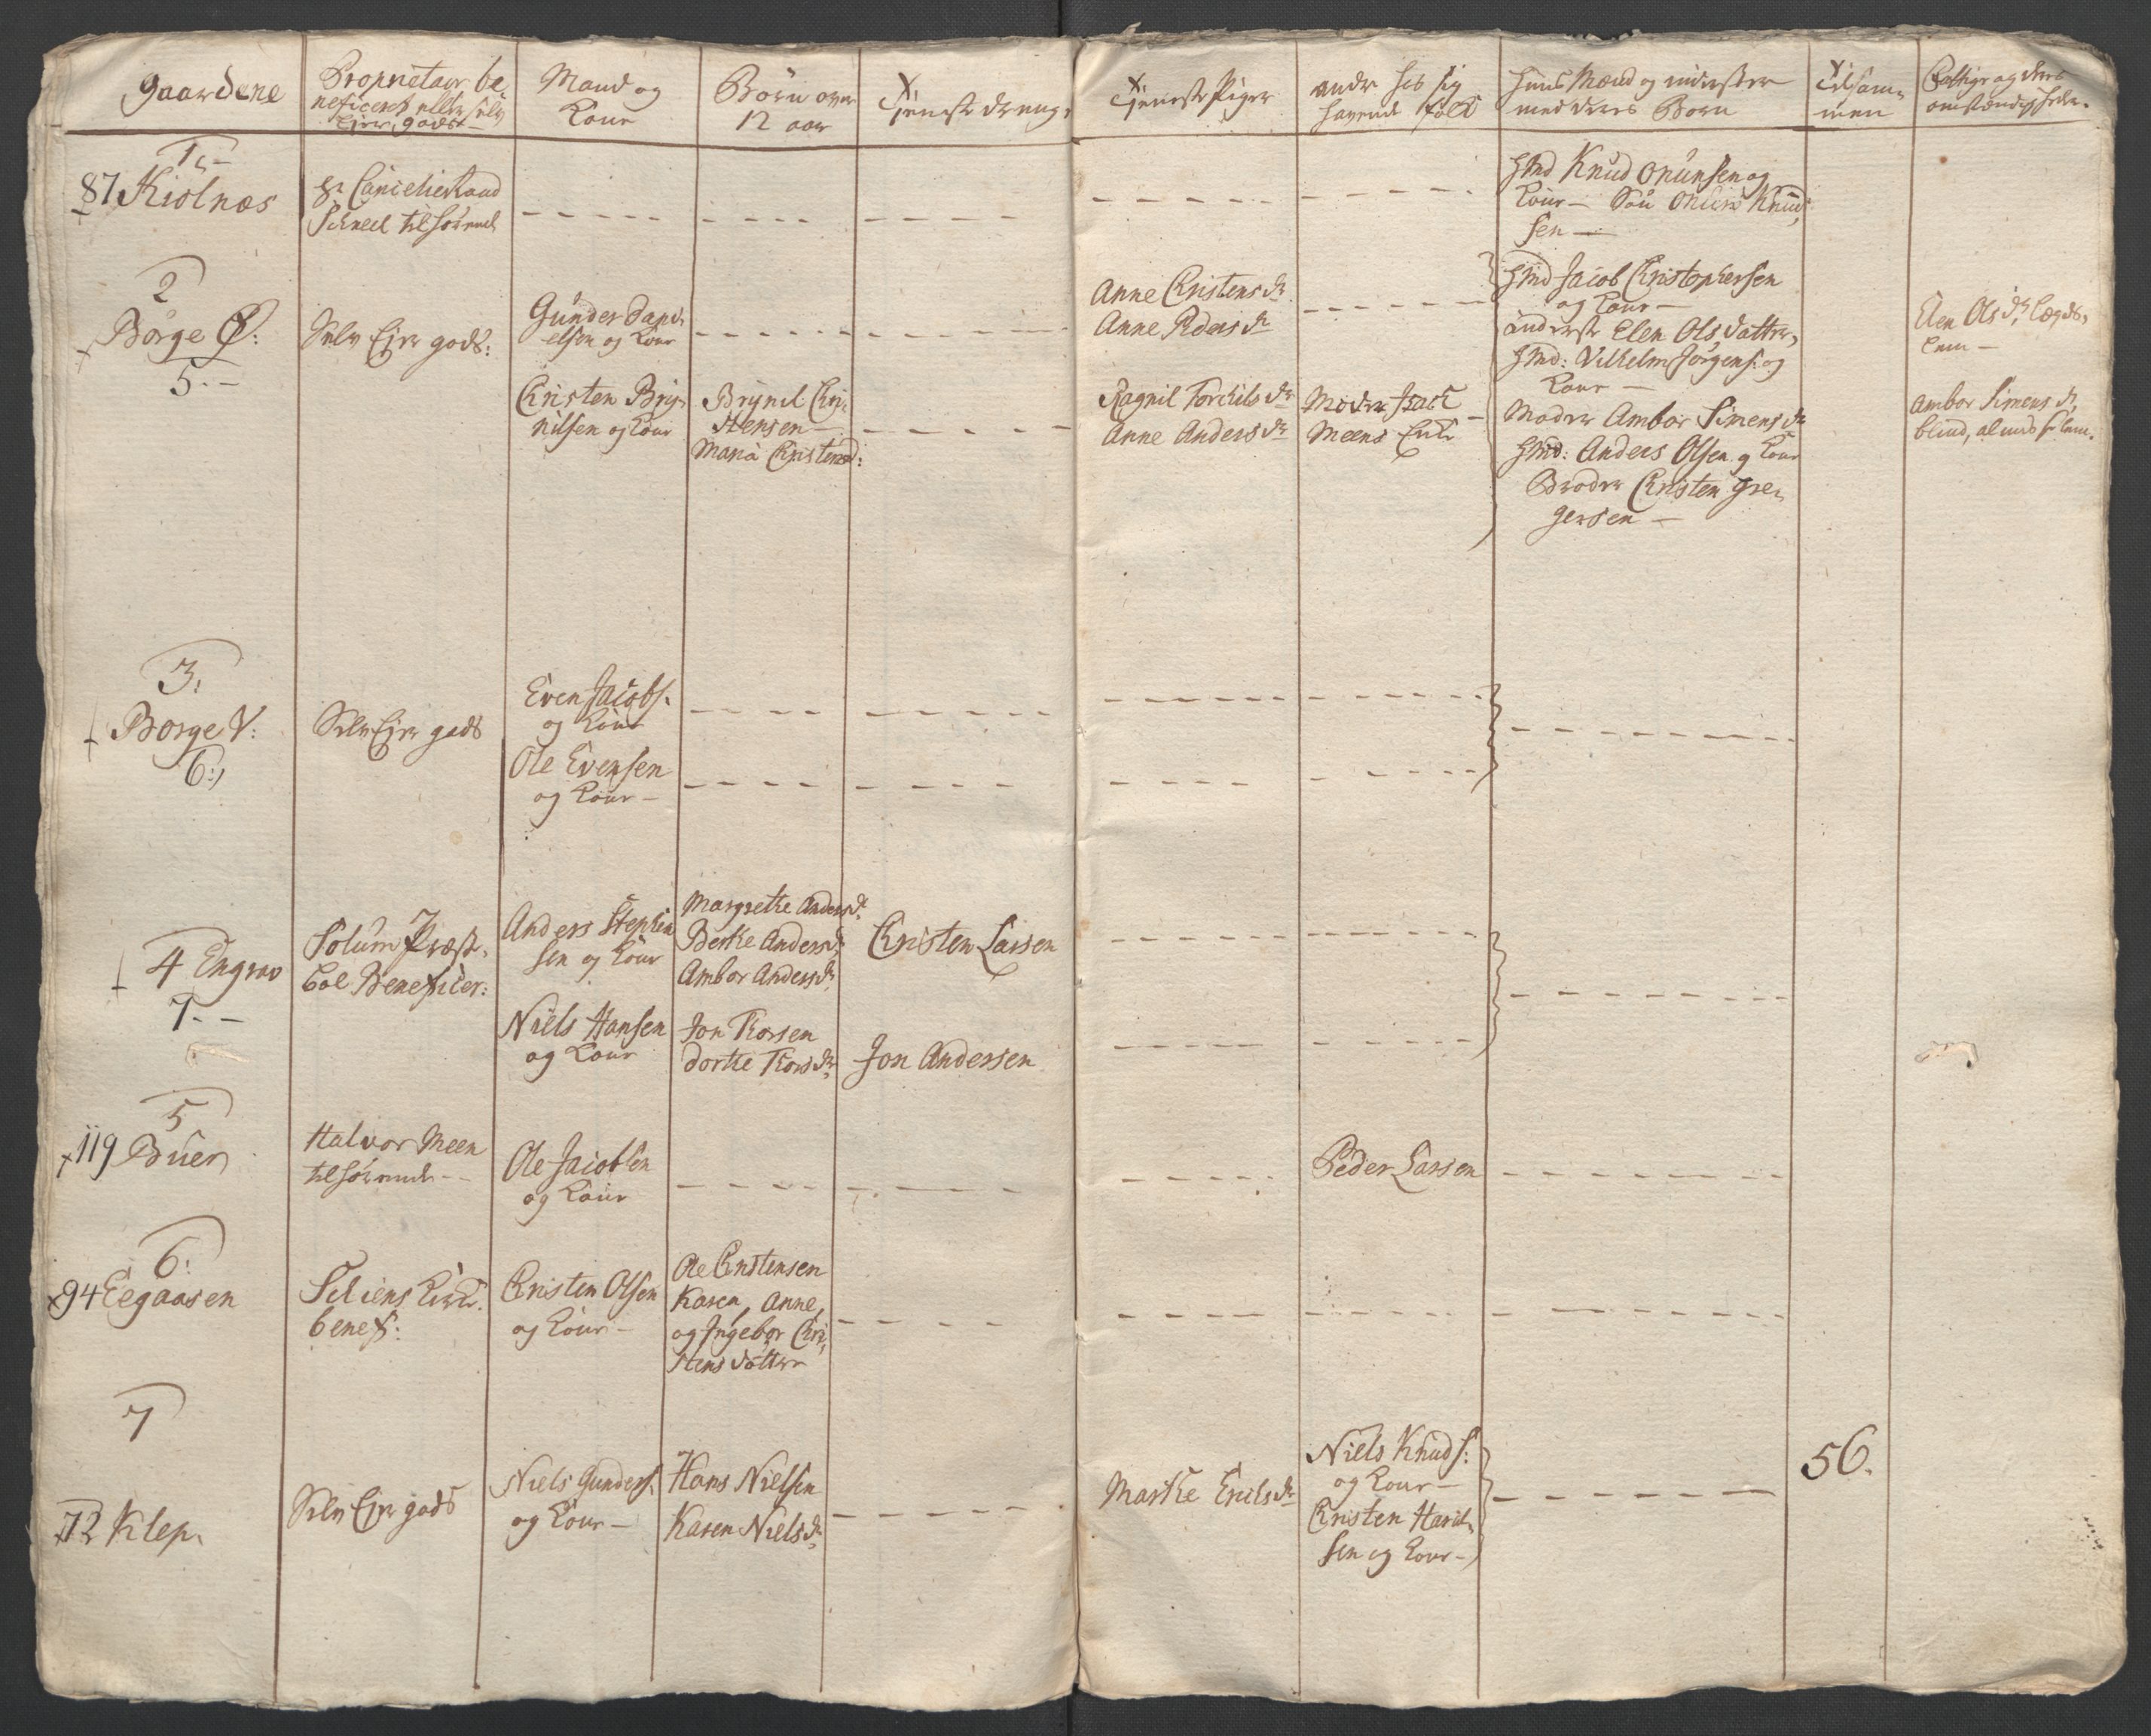 Gaardene
Proprietair be,
neficeret eller selv
Ejer gods
Mand og
Kone
Børn over
12 aar
Tjeneste drenge
Tjeneste Piger
andre hos sig
havende folk
Huus Mænd og inderster
med deres Børn
Tilsam-
men
Fattige og deres
omstændigheder
1.
87 Kiølnæs
Hr Cancelieraad
tilhørende
Hmd Knud
og
Kone - Søn Knud,
sen
2
Børge Ø:
5.
Selv Ejer gods:
Gunder Dani,
elsen og Kone
Anne Christensdr
Anne Pedersdr
Hmd Jacob Christophersen
og Kone
inderste Elen Olsdatter,
Hmd: Vilhelm Jørgens: og
Kone
Elen Olsdr, Lægds,
lem
Christen Bry,
nilsen og Kone
Brynil Chri,
stensen
Maria Christensd:
Ragnil Torkildsdr
Anne Andersdr
Moder Isach
Meens Enke
Moder Ambor Simensdr
Hmd: Anders Olsen og Kone
Broder Christen Gre,
gersen
Ambor Simensdr,
blind,
3.
Borge V:
6.
Selv Ejer gods
Even Jacobs.
og Kone
Ole Evensen
og Kone
4 Engrav
7.
Solum Præste,
bol Beneficer:
Anders Stephen
sen og Kone
Margrethe Andersdr
Berthe Andersdr
Ambor Andersdr
Christen Larsen
Niels Hansen
og Kone
Jon Thorsen
Dorthe Thorsdr
Jon Andersen
5
119 Buer
Halvor Meen
tilhørende
Ole Jacobsen
og Kone
Peder Larsen
6.
94 Eegaasen
Seliens Kirke
benef:
Christen Olsen
og Kone
Ole Christensen
Karen, Anne,
og Ingebor Chri,
stensdotter
7
72 Klep.
Selv Ejer gods
Niels Gunders.
og Kone
Hans Nielsen
Karen Nielsdr
Marthe Erichsdr
Niels Knuds:
og Kone
Christen Harild,
sen og Kone
56.